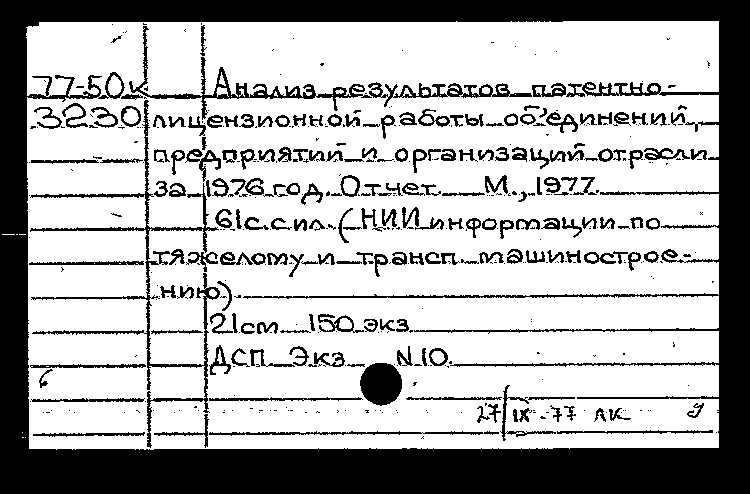 77-50к Анализ результатов патентно-
3230 лицензионной работы объединений,
предприятий и организаций отрасли
за 1976 год. Отчет. М., 1977.
61с. с ил. (НИИ информации по
тяжелому и трансп. машинострое-
нию).
21см 150 экз
ДСП Экз N 10.
27/IX-77 ЛК